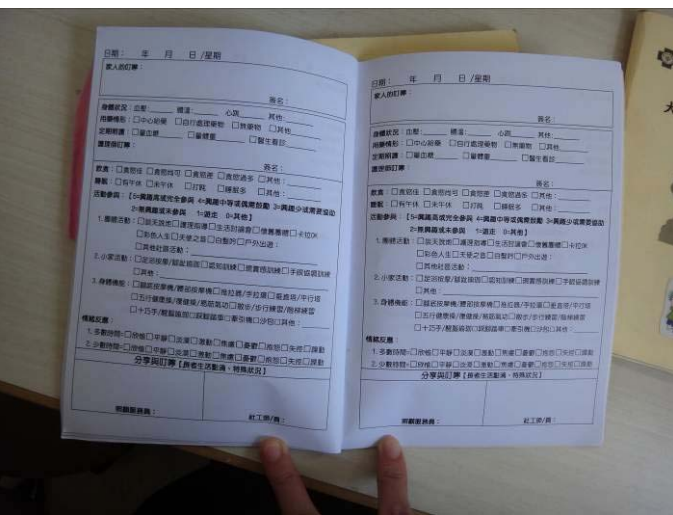 日期： 年 月 日 /星期
家人的叮嚀：
簽名：
身體狀況：血壓： 體溫： 心跳 其他：
用藥情形：□中心給藥 □自行處理藥物 □無藥物 □其他
定期照護：□量血糖 □量體重 □醫生看診
護理師叮嚀：
簽名：
飲食：□食慾佳 □食慾尚可 □食慾差 □食慾過多 □其他：
睡眠：□有午休 □未午休 □打盹 □睡眠多 □其他：
活動參與：【5=興趣高或完全參與 4=興趣中等或偶需鼓勵 3=興趣少或需要協助
2=無興趣或未參與 1=遊走 0=其他】
1.團體活動：□談天說地□護理指導□生活討論會□懷舊團體□卡拉OK
□彩色人生□天使之音□白髮吟□戶外出遊：
□其他社區活動：
2.小家活動：□足浴按摩/腳趾搶圈□認知訓練□現實感訓練□手眼協調訓練
□其他：
3.身體機能：□腳底按摩機/腰部按摩機□推拉器/手拉環□垂直塔/平行塔
□五行健康操/復健操/甩筋氣功□散步/步行練習/階梯練習
□十巧手/輕鬆搖囝□踩腳踏車□牽引機□沙包□其他：
情緒反應：
1.多數時間=□欣愉□平靜□淡漠□激動□焦慮□憂鬱□抱怨□失控□躁動
2.少數時間=□欣愉□平靜□淡漠□激動□焦慮□憂鬱□抱怨□失控□躁動
分享與叮嚀【長者生活點滴、特殊狀況】
照顧服務員： 社工師/員：
日期： 年 月 日 /星期
家人的叮嚀：
簽名：
身體狀況：血壓： 體溫： 心跳 其他：
用藥情形：□中心給藥 □自行處理藥物 □無藥物 □其他
定期照護：□量血糖 □量體重 □醫生看診
護理師叮嚀：
簽名：
飲食：□食慾佳 □食慾尚可 □食慾差 □食慾過多 □其他：
睡眠：□有午休 □未午休 □打盹 □睡眠多 □其他：
活動參與：【5=興趣高或完全參與 4=興趣中等或偶需鼓勵 3=興趣少或需要協助
2=無興趣或未參與 1=遊走 0=其他】
1.團體活動：□談天說地□護理指導□生活討論會□懷舊團體□卡拉OK
□彩色人生□天使之音□白髮吟□戶外出遊：
□其他社區活動：
2.小家活動：□足浴按摩/腳趾搶圈□認知訓練□現實感訓練□手眼協調訓練
□其他：
3.身體機能：□腳底按摩機/腰部按摩機□推拉器/手拉環□垂直塔/平行塔
□五行健康操/復健操/甩筋氣功□散步/步行練習/階梯練習
□十巧手/輕鬆搖囝□踩腳踏車□牽引機□沙包□其他：
情緒反應：
1.多數時間=□欣愉□平靜□淡漠□激動□焦慮□憂鬱□抱怨□失控□躁動
2.少數時間=□欣愉□平靜□淡漠□激動□焦慮□憂鬱□抱怨□失控□躁動
分享與叮嚀【長者生活點滴、特殊狀況】
照顧服務員： 社工師/員：